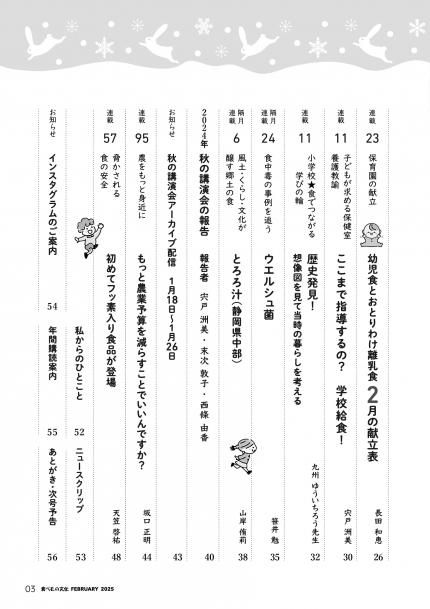 連載 23 保育園の献立 幼児食とおとりわけ離乳食 2月の献立表 長田 和恵 26
連載 11 子どもが求める保健室
養護教諭 ここまで指導するの? 学校給食! 宍戸 洲美 30
連載 11 小学校★食でつながる
学びの輪 歴史発見!
想像図を見て当時の暮らしを考える 九州 ゆういちろう先生 32
隔月連載 24 食中毒の事例を追う ウエルシュ菌 笹井 勉 35
隔月連載 6 風土・くらし・文化が
醸す郷土の食 とろろ汁(静岡県中部) 山岸 侑莉 38
2024年 秋の講演会の報告 報告者 宍戸 洲美・末次 敦子・西條 由香 40
お知らせ 秋の講演会アーカイブ配信 1月18日〜1月26日 43
連載 95 農をもっと身近に もっと農業予算を減らすことでいいんですか? 坂口 正明 44
連載 57 脅かされる
食の安全 初めてフッ素入り食品が登場 天笠 啓祐 48
私からのひとこと 52 ニュースクリップ 53
お知らせ インスタグラムのご案内 54 年間購読案内 55 あとがき・次号予告 56
03 食べもの文化 FEBRUARY 2025